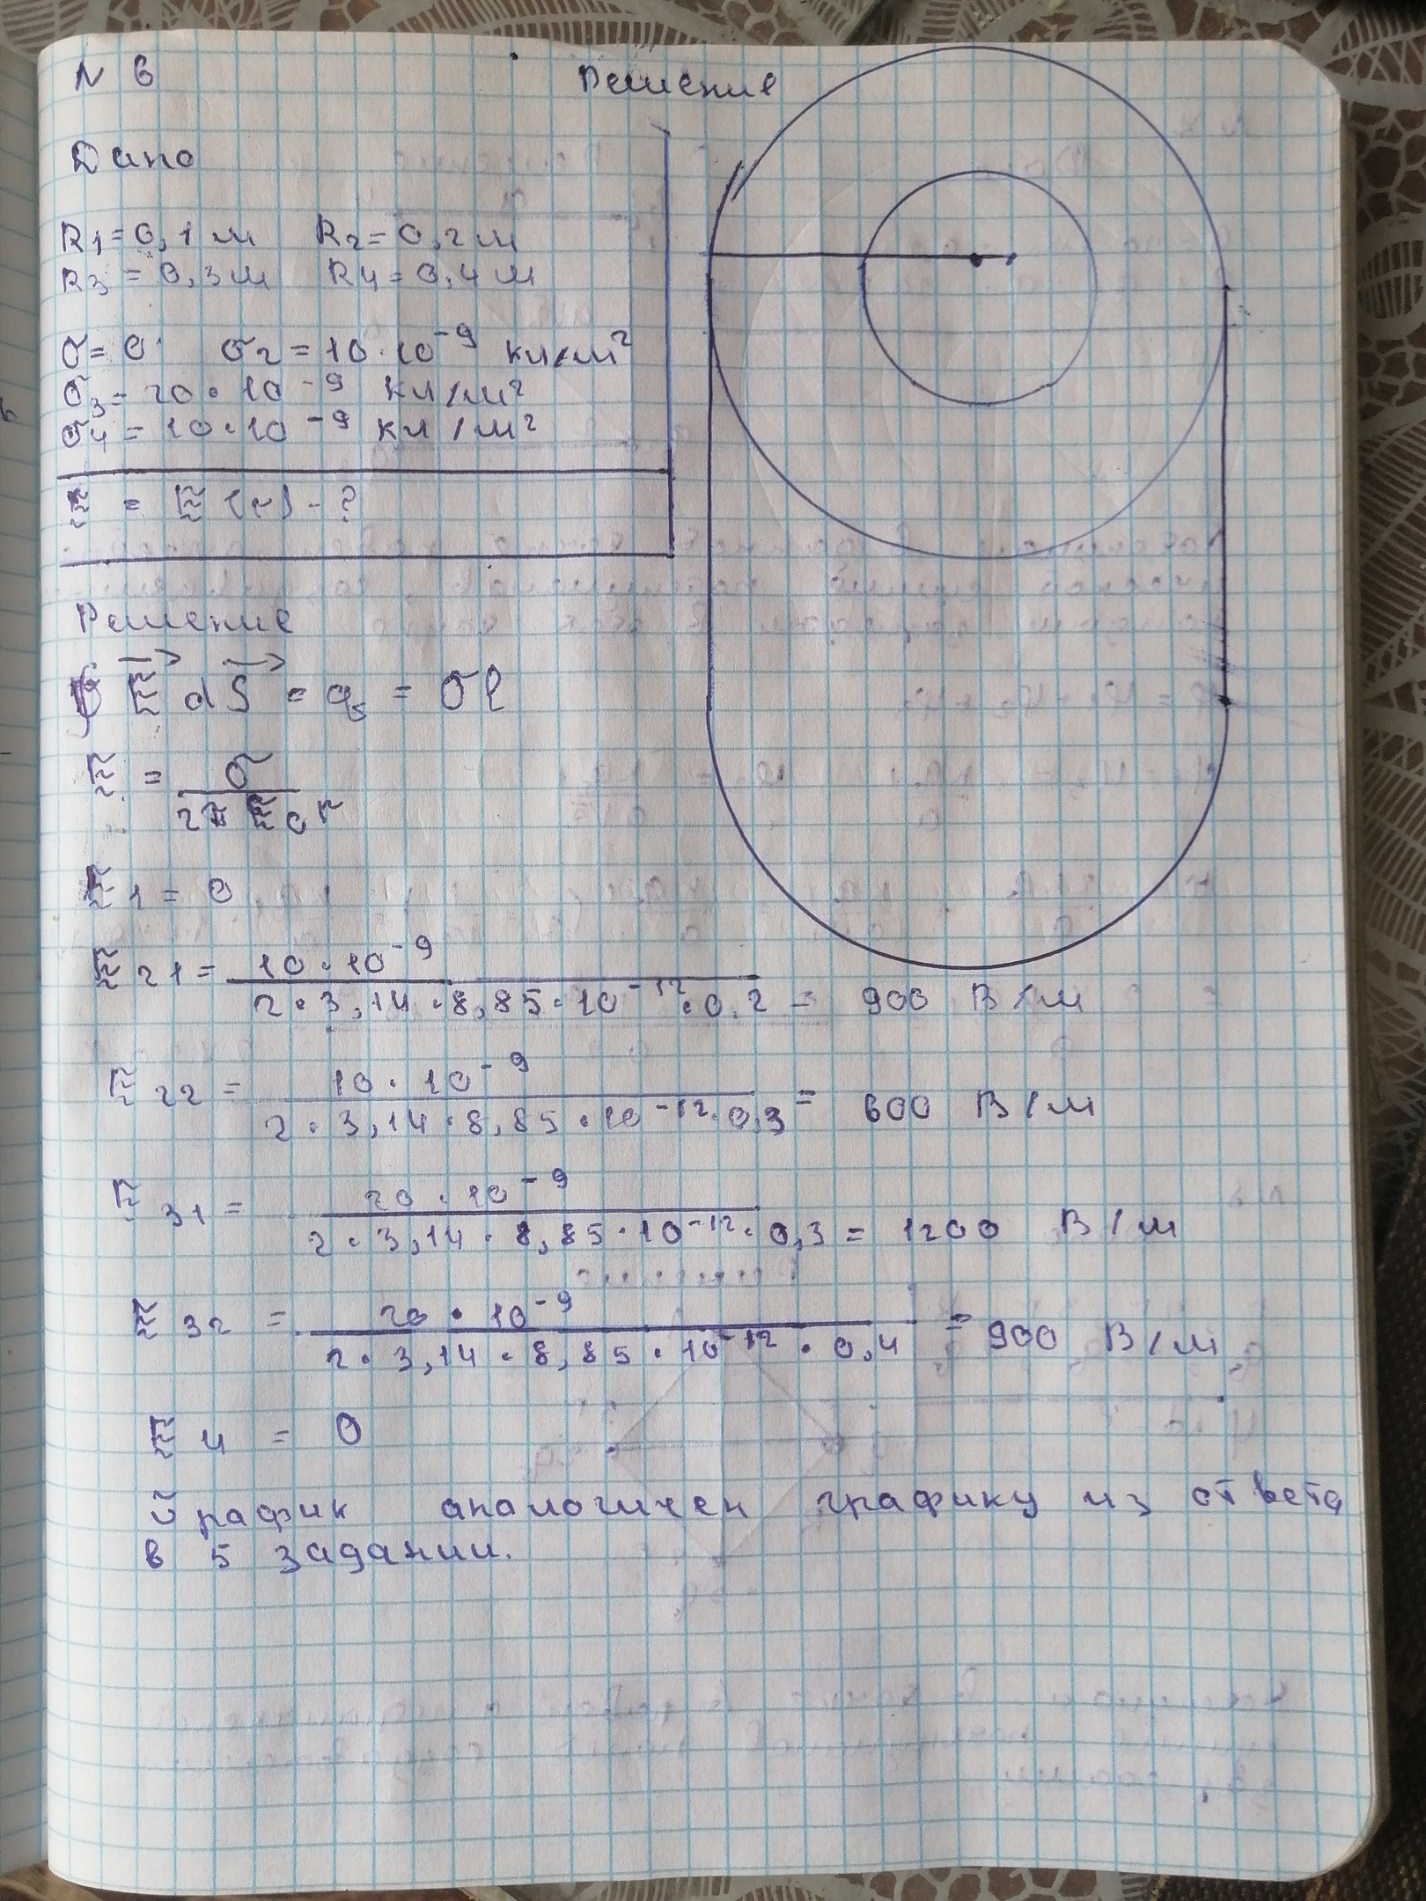 N 6 Решение
Дано
R1=0,1 м R2=0,2 м
R3=0,3 м R4=0,4 м
σ=0 σ2=10·10⁻⁹ кл/м²
σ3=20·10⁻⁹ кл/м²
σ4=10·10⁻⁹ кл/м²
E = E(r)-?
Решение
∮ E dS = q = σl
E = σ / 2π E0 r
E1 = 0
E21 = 10·10⁻⁹ / 2·3,14·8,85·10⁻¹²·0,2 = 900 В/м
E22 = 10·10⁻⁹ / 2·3,14·8,85·10⁻¹²·0,3 = 600 В/м
E31 = 20·10⁻⁹ / 2·3,14·8,85·10⁻¹²·0,3 = 1200 В/м
E32 = 20·10⁻⁹ / 2·3,14·8,85·10⁻¹²·0,4 = 900 В/м
E4 = 0
График аналогичен графику из ответа
в 5 задании.